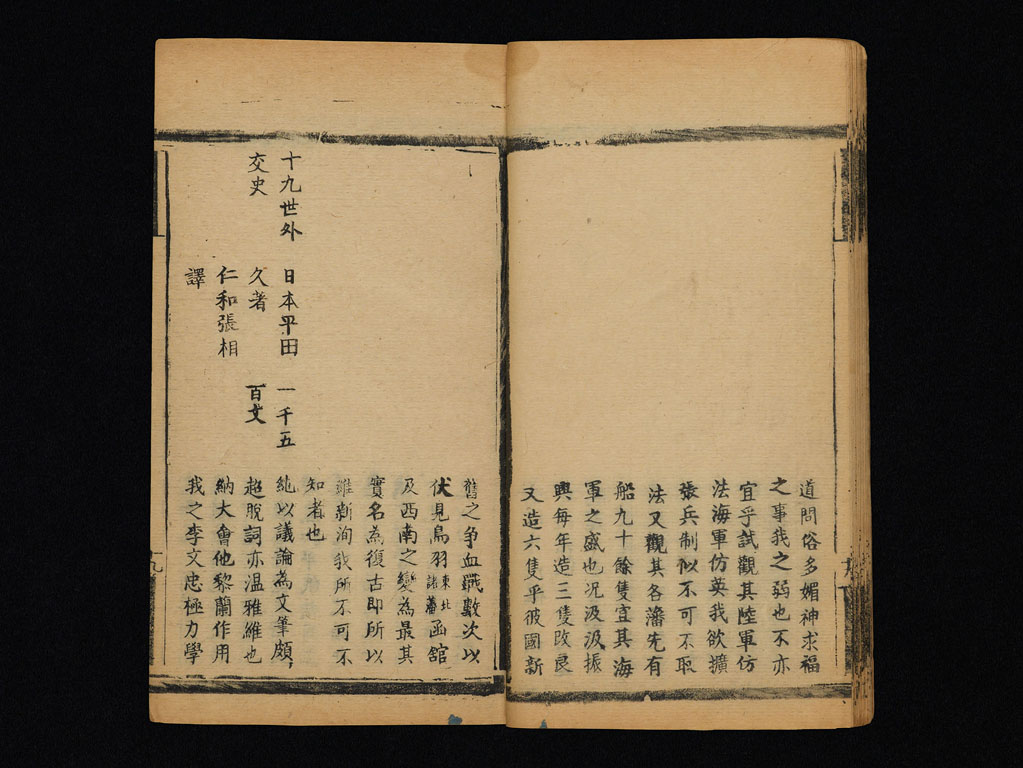 道問俗多媚神求福
之事我之弱也不亦
宜乎試觀其陸軍仿
法海軍仿英我欲擴
張兵制似不可不取
法又觀其各藩先有
船九十餘隻宜其海
軍之盛也况汲汲振
興每年造三隻改良
又造六隻乎彼國新
舊之争血戰數次以
伏見鳥羽東北諸藩函舘
及西南之變為最其
實名為復古即所以
維新洵我所不可不
知者也
十九世外
交史
日本平田
久著
仁和張相
譯
一千五
百文
純以議論為文筆頗
超脫詞亦温雅維也
納大會他黎蘭作用
我之李文忠極力學